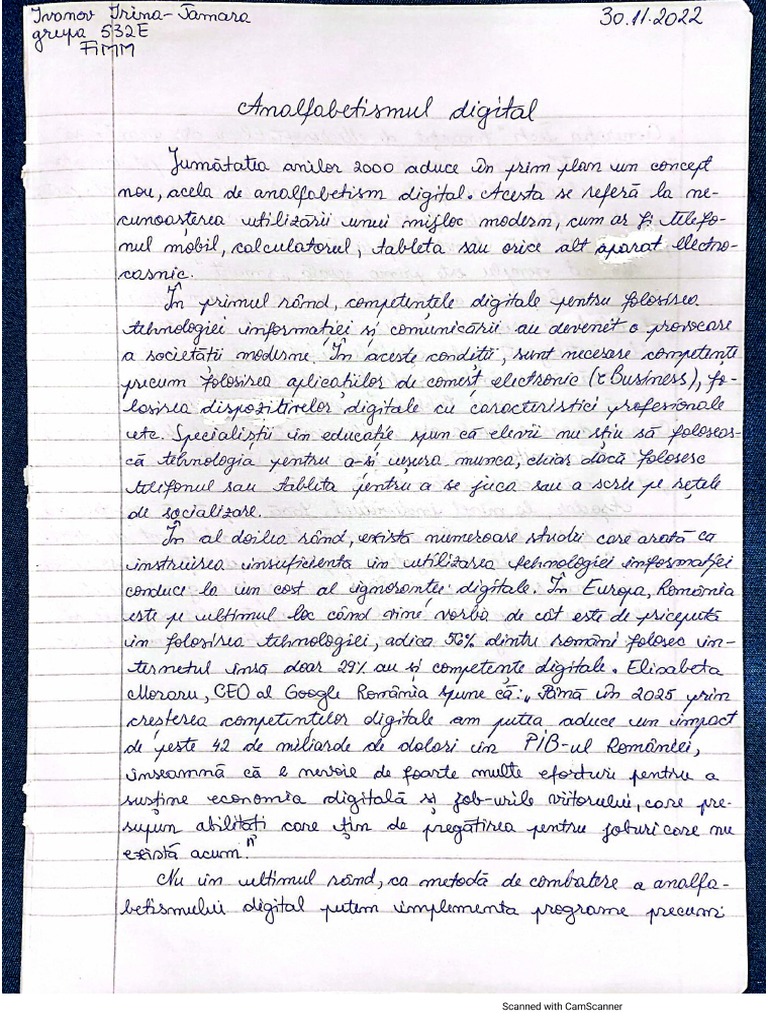 Ivanov Irina-Tamara
30.11.2022
grupa 532E
FIMM
Analfabetismul digital
Jumătatea anilor 2000 aduce în prim plan un concept
nou, acela de analfabetism digital. Acesta se referă la ne-
cunoașterea utilizării unui mijloc modern, cum ar fi telefo-
nul mobil, calculatorul, tableta sau orice alt aparat electro-
casnic.
În primul rând, competențele digitale pentru folosirea
tehnologiei informației și comunicării au devenit o provocare
a societății moderne. În aceste condiții, sunt necesare competențe
precum folosirea aplicațiilor de comerț electronic (eBusiness), fo-
losirea dispozitivelor digitale cu caracteristici profesionale
etc. Specialiștii în educație spun că elevii nu știu să foloseas-
că tehnologia pentru a-și ușura munca, chiar dacă folosesc
telefonul sau tableta pentru a se juca sau a scrie pe rețele
de socializare.
În al doilea rând, există numeroase studii care arată că
instruirea insuficientă în utilizarea tehnologiei informației
conduce la un cost al ignoranței digitale. În Europa, România
este pe ultimul loc când vine vorba de cât este de pricepută
în folosirea tehnologiei, adică 56% dintre români folosec in-
ternetul însă doar 29% au și competențe digitale. Elisabeta
Moraru, CEO al Google România spune că: „Până în 2025 prin
creșterea competențelor digitale am putea aduce un impact
de peste 42 de miliarde de dolari în PIB-ul României,
înseamnă că e nevoie de foarte multe eforturi pentru a
susține economia digitală și job-urile viitorului, care pre-
supun abilități care țin de pregătirea pentru joburi care nu
există acum."
Nu în ultimul rând, ca metodă de combatere a analfa-
betismului digital putem implementa programe precum:
Scanned with CamScanner